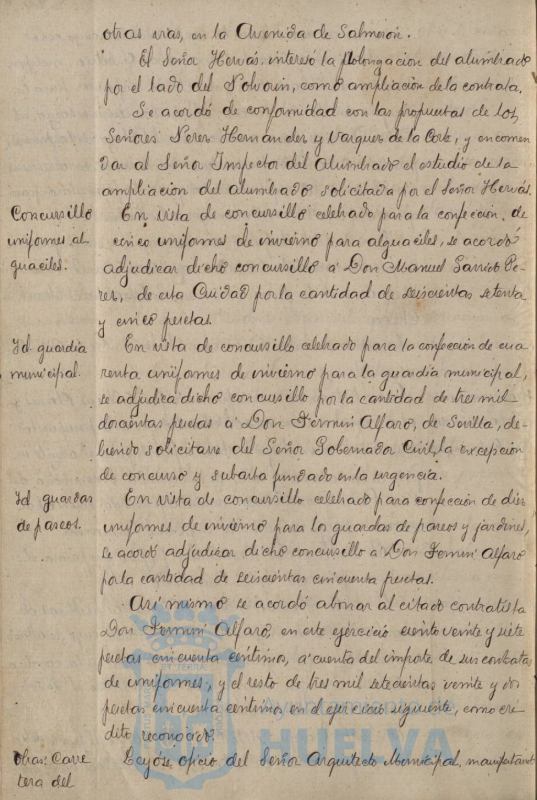 otras vias, en la Avenida de Salmerón.
El Señor Hervás, interesó la prolongacion del alumbrado
por el lado del Polvorin, como ampliación de la contrata.
Se acordó de conformidad con las propuestas de los
Señores Perez Hernandez y Vazquez de la Corte, y encomen
dar al Señor Inspector del Alumbrado el estudio de la
ampliación del alumbrado solicitada por el Señor Hervás.
Concursillo
uniformes al
guaciles.
En vista de concursillo celebrado para la confección de
cinco uniformes de invierno para alguaciles, se acordó
adjudicar dicho concursillo á Don Manuel Pe-
rez, de esta Ciudad por la cantidad de seiscientas setenta
y cinco pesetas.
Id. guardia
municipal.
En vista de concursillo celebrado para la confección de cua
renta uniformes de invierno para la guardia municipal,
se adjudica dicho concursillo por la cantidad de tres mil
doscientas pesetas á Don Fermin Alfaro, de Sevilla, de-
biendo solicitarse del Señor Gobernador Civil, la excepción
de concurso y subasta fundado en la urgencia.
Id. guardas
de paseos.
En vista de concursillo celebrado para confección de diez
uniformes de invierno para los guardas de paseos y jardines,
se acordó adjudicar dicho concursillo á Don Fermin Alfaro
por la cantidad de seiscientas cincuenta pesetas.
Asi mismo se acordó abonar al citado contratista
Don Fermin Alfaro, en este ejercicio ciento veinte y siete
pesetas cincuenta centimos, á cuenta del importe de sus contratas
de uniformes, y el resto de tres mil setecientas veinte y dos
pesetas cincuenta centimos en el ejercicio siguiente, como cre
dito reconocido.
Obras: Carre
tera del
Leyóse oficio del Señor Arquitecto Municipal, manifestando
HUELVA